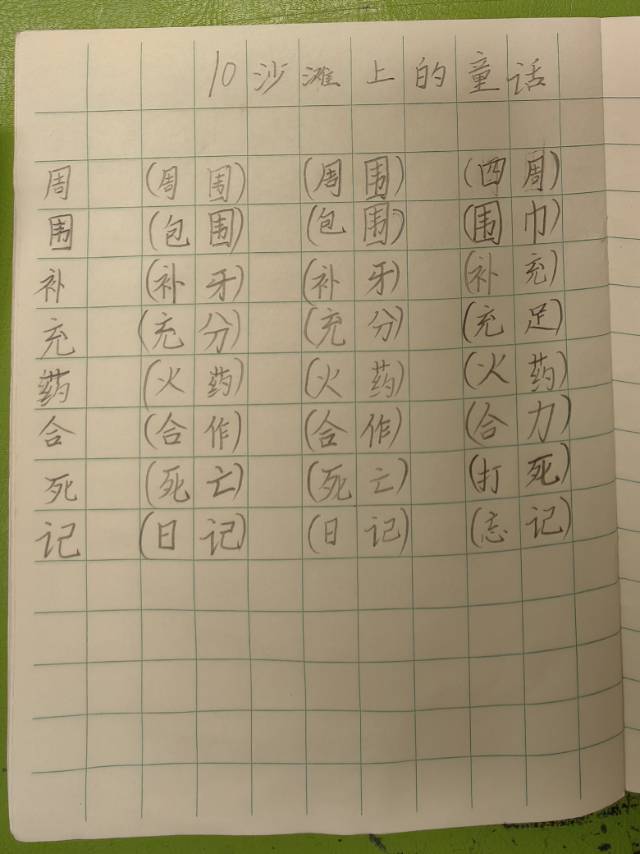 10 沙滩上的童话
周 (周围) (周围) (四周)
围 (包围) (包围) (围巾)
补 (补牙) (补牙) (补充)
充 (充分) (充分) (充足)
药 (火药) (火药) (火药)
合 (合作) (合作) (合力)
死 (死亡) (死亡) (打死)
记 (日记) (日记) (忘记)